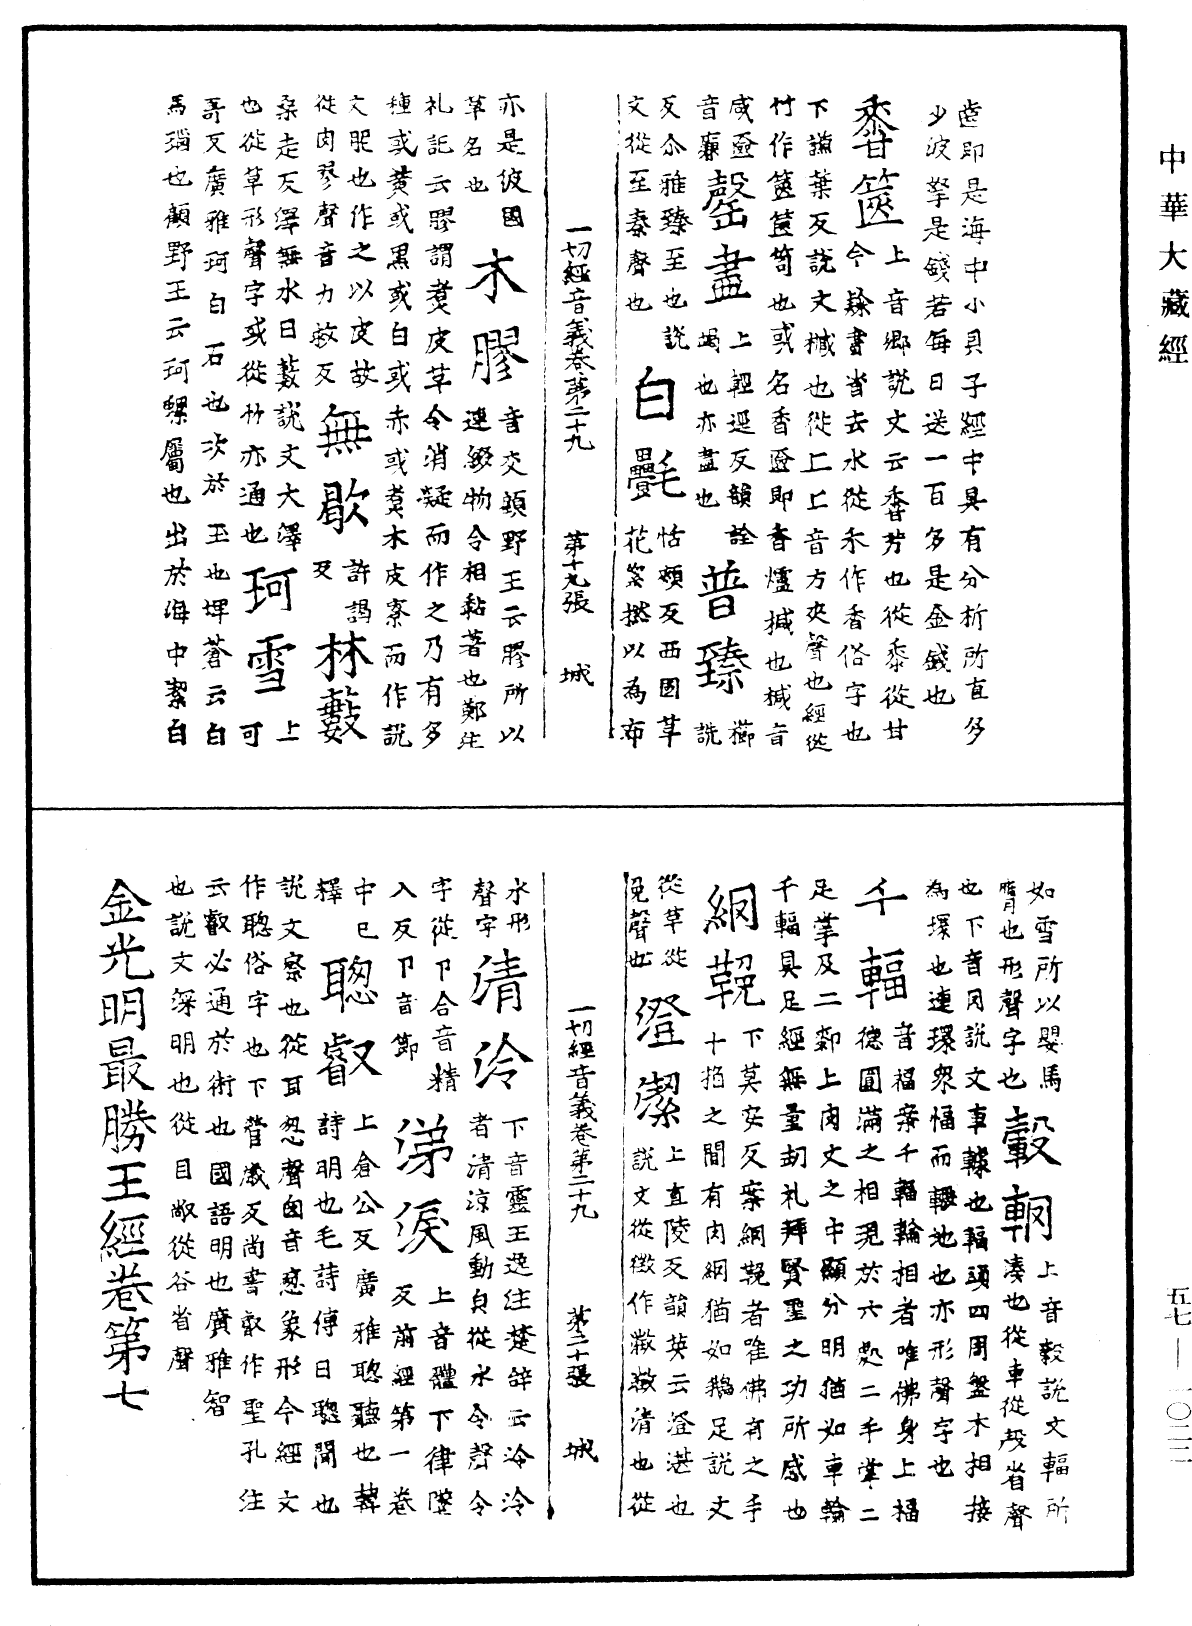 中華大藏經
齒即是海中小貝子經中具有分析所直多
少波拏是錢若每日送一百多是金錢也
香篋 上音鄉說文云香芳也從黍從甘
今隸書省去水從禾作香俗字也
下謙葉反說文椷也從匚匚音方夾聲也經從
竹作篋篋笥也或名香奩即香爐椷也椷音
咸奩音廉 罄盡 上輕逕反韻詮
竭也亦盡也 普臻 櫛詵
反尒雅臻至也說文從至秦聲也 白㲲 怙頰反西國草
花絮撚以為布
一切經音義卷第二十九 第十九張 城
亦是彼國草名也 木膠 音交顧野王云膠所以
連綴物令相黏著也鄭注
礼記云膠謂煑皮草令消凝而作之乃有多
種或黃或黑或白或赤或煑木皮寮而作說
文昵也作之以皮故
從肉翏聲音力救反 無歇 許謁反 林藪
桑走反繹無水曰藪說文大澤
也從草形聲字或從竹亦通也 珂雪 上可
哥反廣雅珂白石也次於玉也埤蒼云白
馬瑙也顧野王云珂螺屬也出於海中絜白
如雪所以嬰馬
膺也形聲字也 轂輞 上音穀說文輻所
湊也從車從殻省聲
也下音罔說文車輮也輻頭四周盤木相接
為環也連環衆輻而輾地也亦形聲字也
千輻 音福案千輻輪相者唯佛身上福
德圓滿之相現於六處二手掌二
足掌及二䣛上肉文之中顯分明猶如車輪
千輻具足經無量劫礼拜賢聖之功所感也
網鞔 下莫安反案網鞔者唯佛有之手
十指之間有肉網猶如鵝足說文
從草從免聲也 澄潔 上直陵反韻英云澄湛也
說文從徴作澂澂清也從
一切經音義卷第二十九 第二十張 城
水形聲字 清泠 下音靈王逸注楚辭云泠泠
者清涼風動皃從水令聲令
字從卩合音精
入反卩音節 涕淚 上音體下律墜
反前經第一卷
中已釋 聰叡 上倉公反廣雅聰聽也韓
詩明也毛詩傳曰聰聞也
說文察也從耳怱聲囱音怱象形今經文
作聰俗字也下營歲反尚書叡作聖孔注
云叡必通於術也國語明也廣雅智
也說文深明也從目㕡從谷省聲
金光明最勝王經卷第七
五七—一〇二二